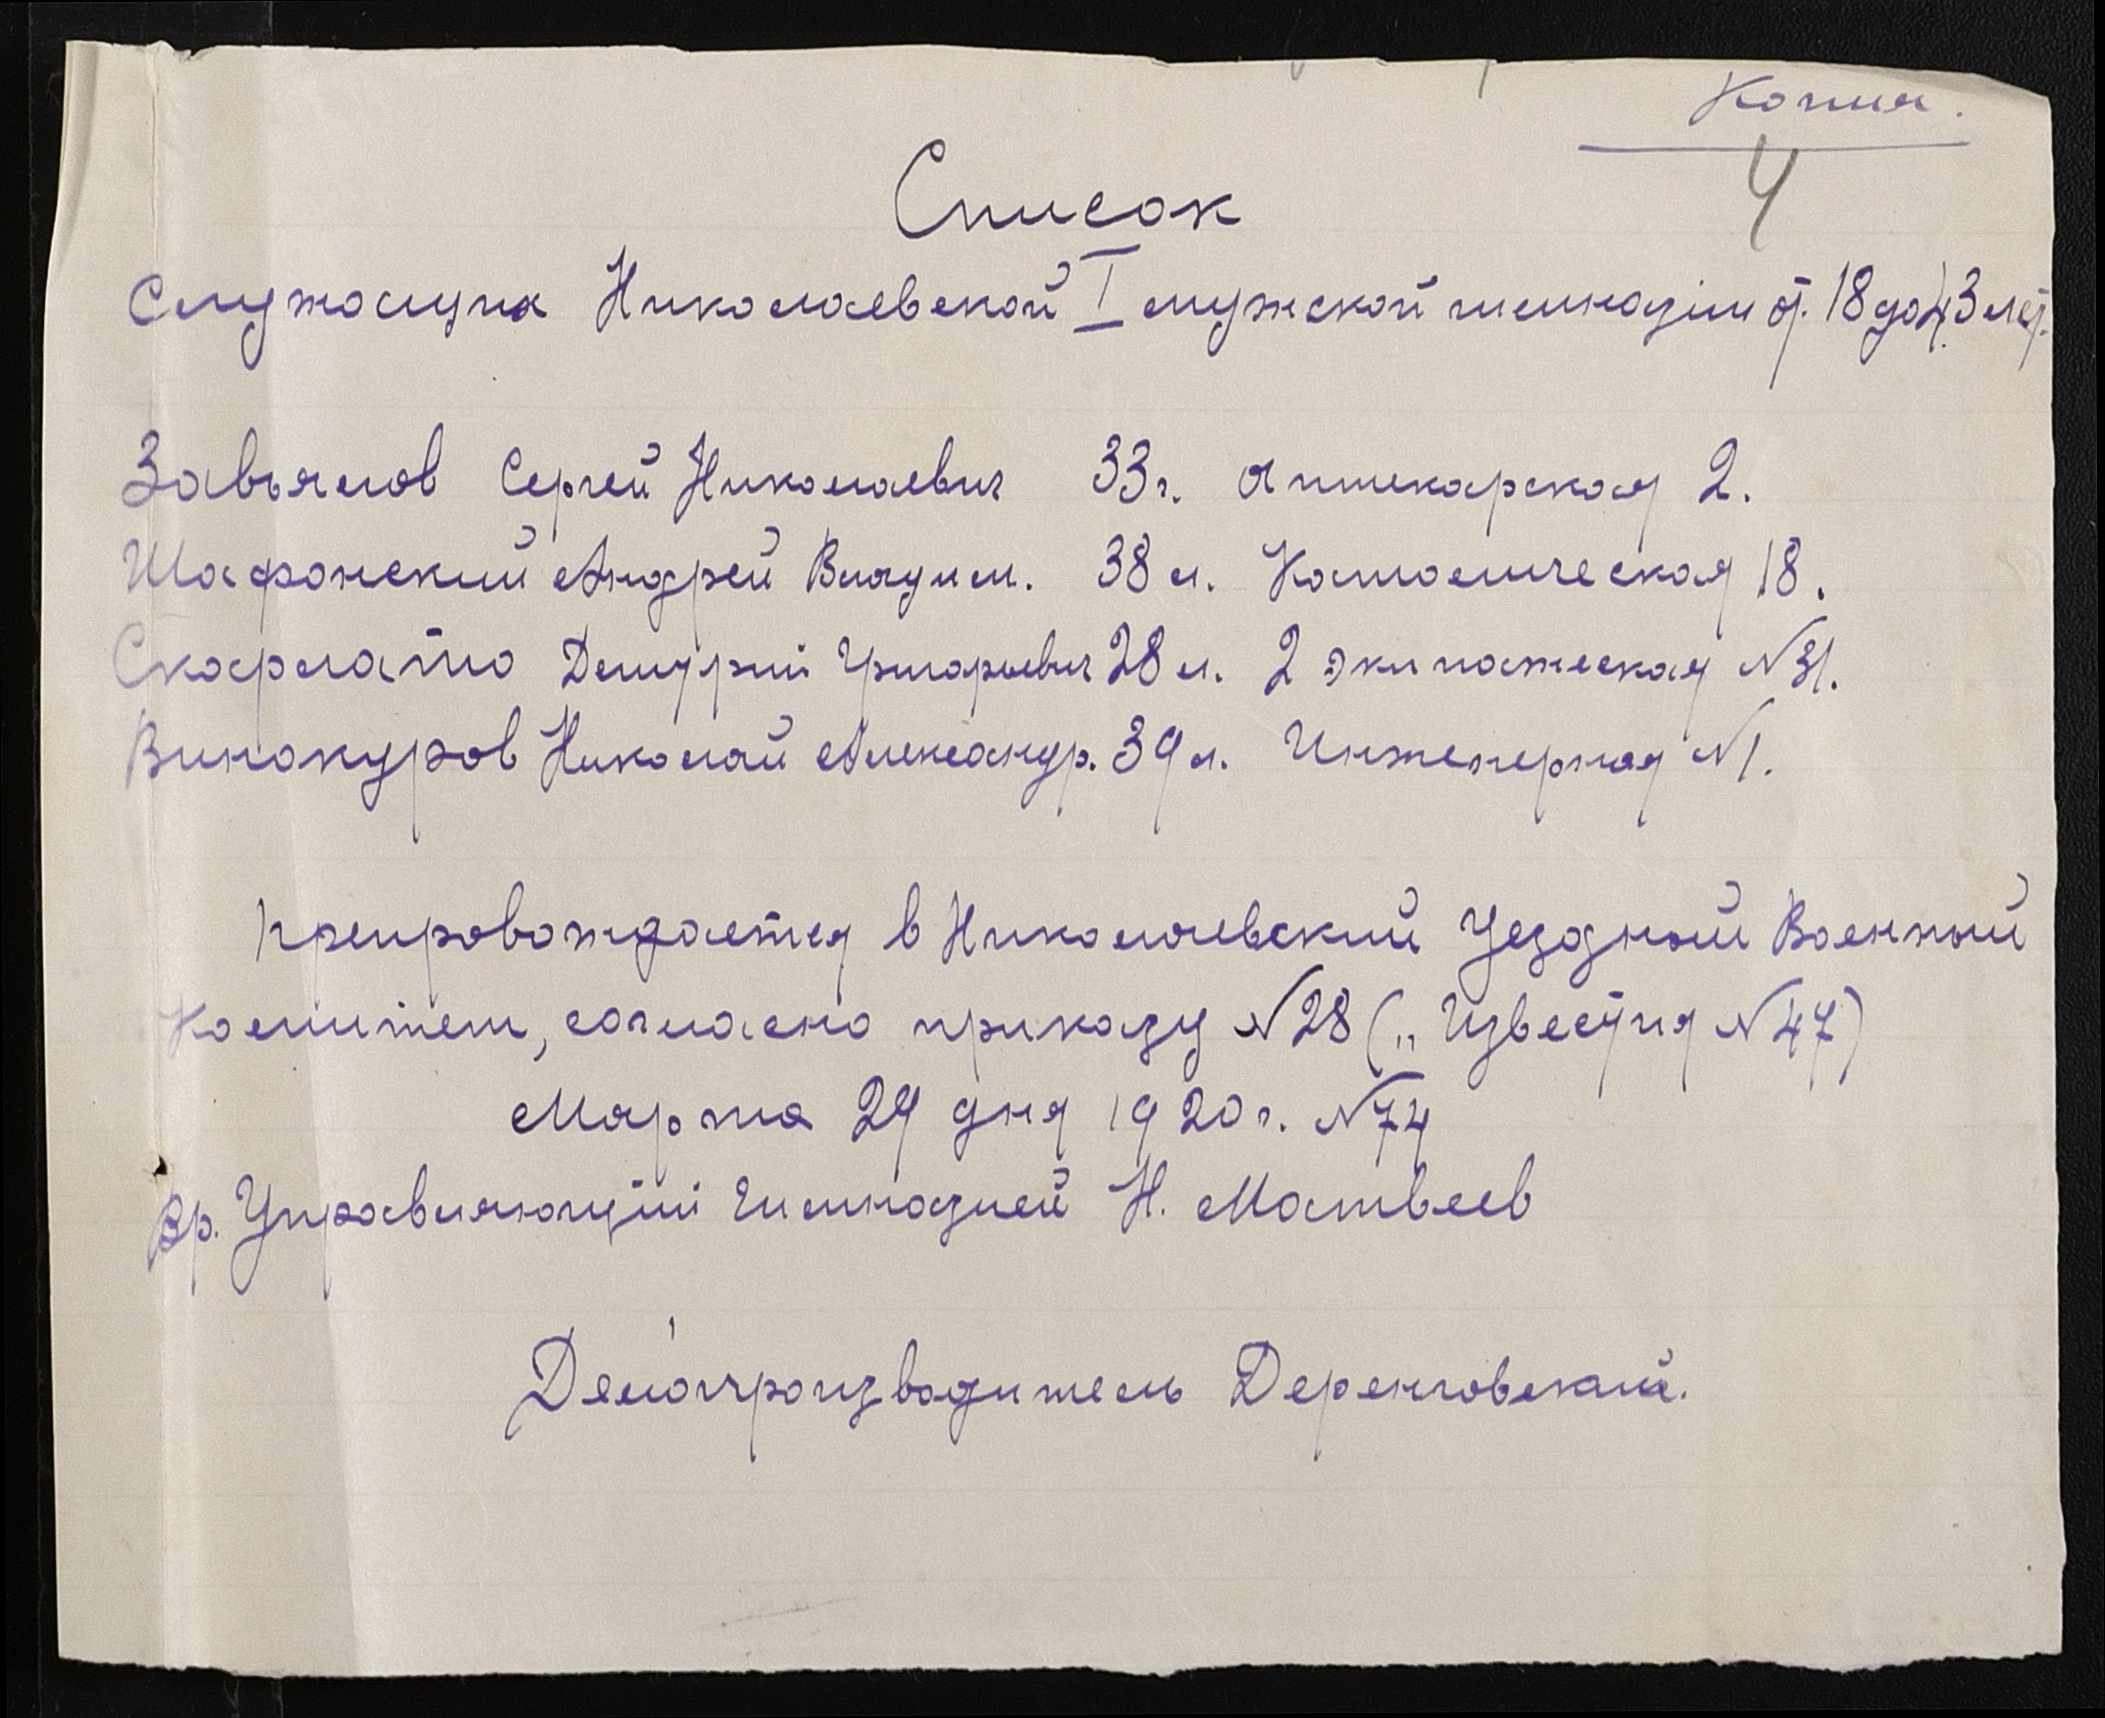 Копия.
4
Список
Служащих Николаевской I мужской гимназіи от. 18 до 43 лет.
Завьялов Сергей Николаевич 33 г. Аптекарская 2.
Шафонский Андрей Владим. 38 л. Католическая 18.
Скарлато Дмитрий Григорьевич 28 л. 2 Экипажеская N 31.
Винокуров Николай Александр. 39 л. Инженерная N 1.
Препровождается в Николаевский Уездный Военный
Комитет, согласно приказу N 28 („Известия N 47)
Марта 29 дня 1920 г. N 74
Вр. Управляющій Гимназией Н. Матвеев
Делопроизводитель Деренговский.